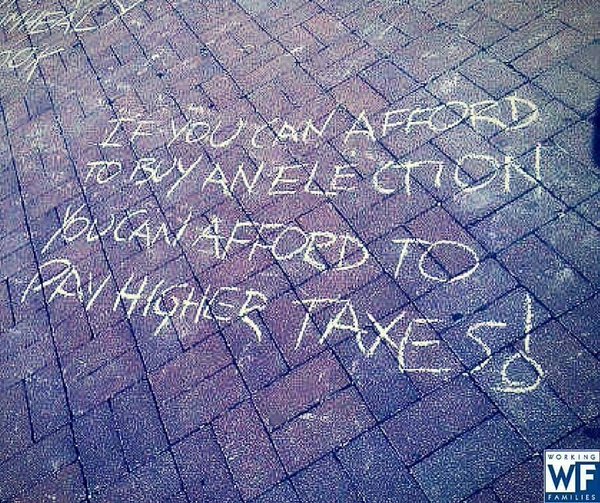 OOK
IF YOU CAN AFFORD
TO BUY AN ELECTION
YOU CAN AFFORD TO
PAY HIGHER TAXES!
WORKING
WF
FAMILIES